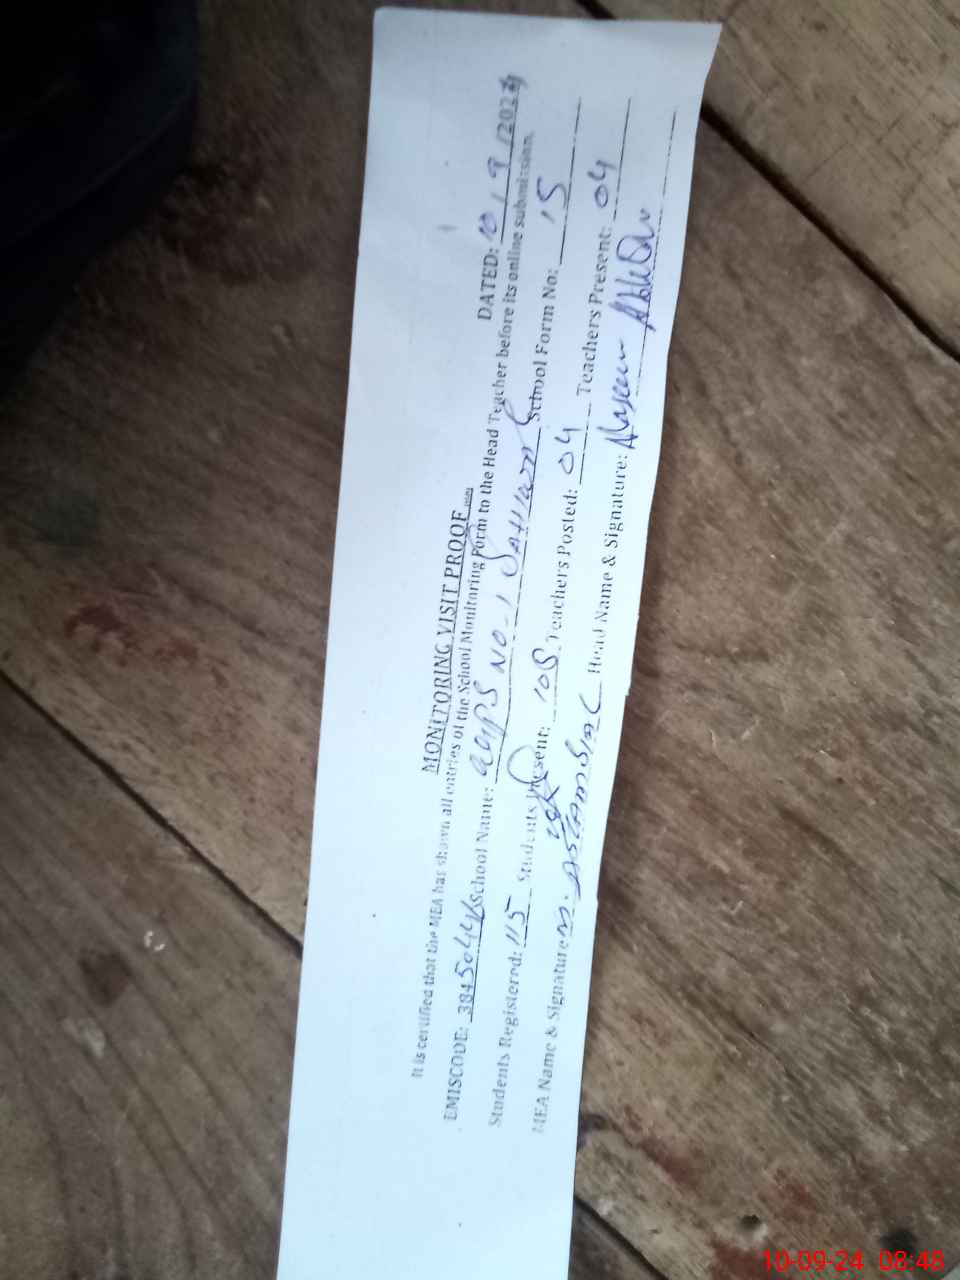 MONITORING VISIT PROOF
DATED: 10/9/2024
It is certified that the MEA has shown all entries of the School Monitoring Form to the Head Teacher before its online submission.
EMISCODE: School Name: NO-1 School Form No: 15
Students Registered: 115 Students Present: 108 Teachers Posted: 04 Teachers Present: 04
MEA Name & Signature M. Head Name & Signature:
10-09-24 08:48